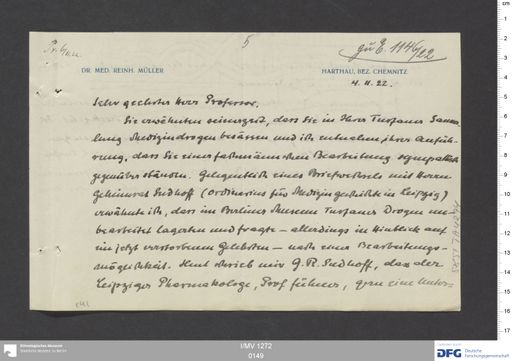 5
gü E. 1146/22
DR. MED. REINH. MÜLLER
HARTHAU, BEZ. CHEMNITZ
4. 11. 22.
Sehr geehrter Herr Professor,
Sie erwähnten seinerzeit, dass Sie in Ihrer Turfaner Samm-
lung Medizindrogen besässen und ich entnahm Ihrer Anfüh-
rung, dass Sie einer fachmännischen Bearbeitung sympathisch
gegenüber ständen. Gelegentlich eines Briefwechsels mit Herrn
Geheimrat Sudhoff (Ordinarius für Medizingeschichte in Leipzig)
erwähnte ich, dass im Berliner Museum Turfaner Drogen un-
bearbeitet lagerten und fragte – allerdings in Hinblick auf
einen jetzt verstorbenen Gelehrten – nach einer Bearbeitungs-
möglichkeit. Heut schrieb mir G. R. Sudhoff, dass der
Leipziger Pharmakologe, Prof. Führer, gern eine Unter-
I/MV 1272
0149
Ethnologisches Museum
Staatliche Museen zu Berlin
DFG
Deutsche
Forschungsgemeinschaft
cm
1
2
3
4
5
6
7
8
9
10
11
12
13
14
15
16
17